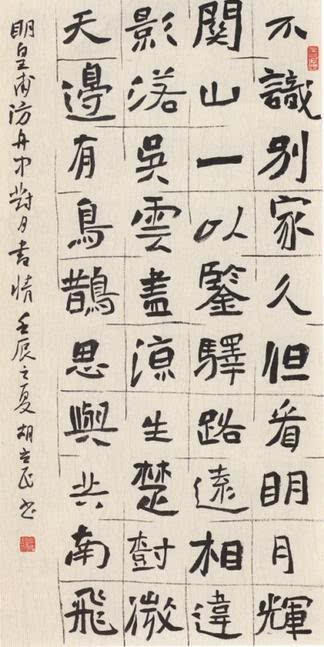 不識別家久但看明月輝
關山一以鑒驛路遠相違
影落吳雲盡涼生楚樹微
天邊有鳥鵲思與共南飛
明皇甫汸舟中對月書情 壬辰之夏 胡立民书